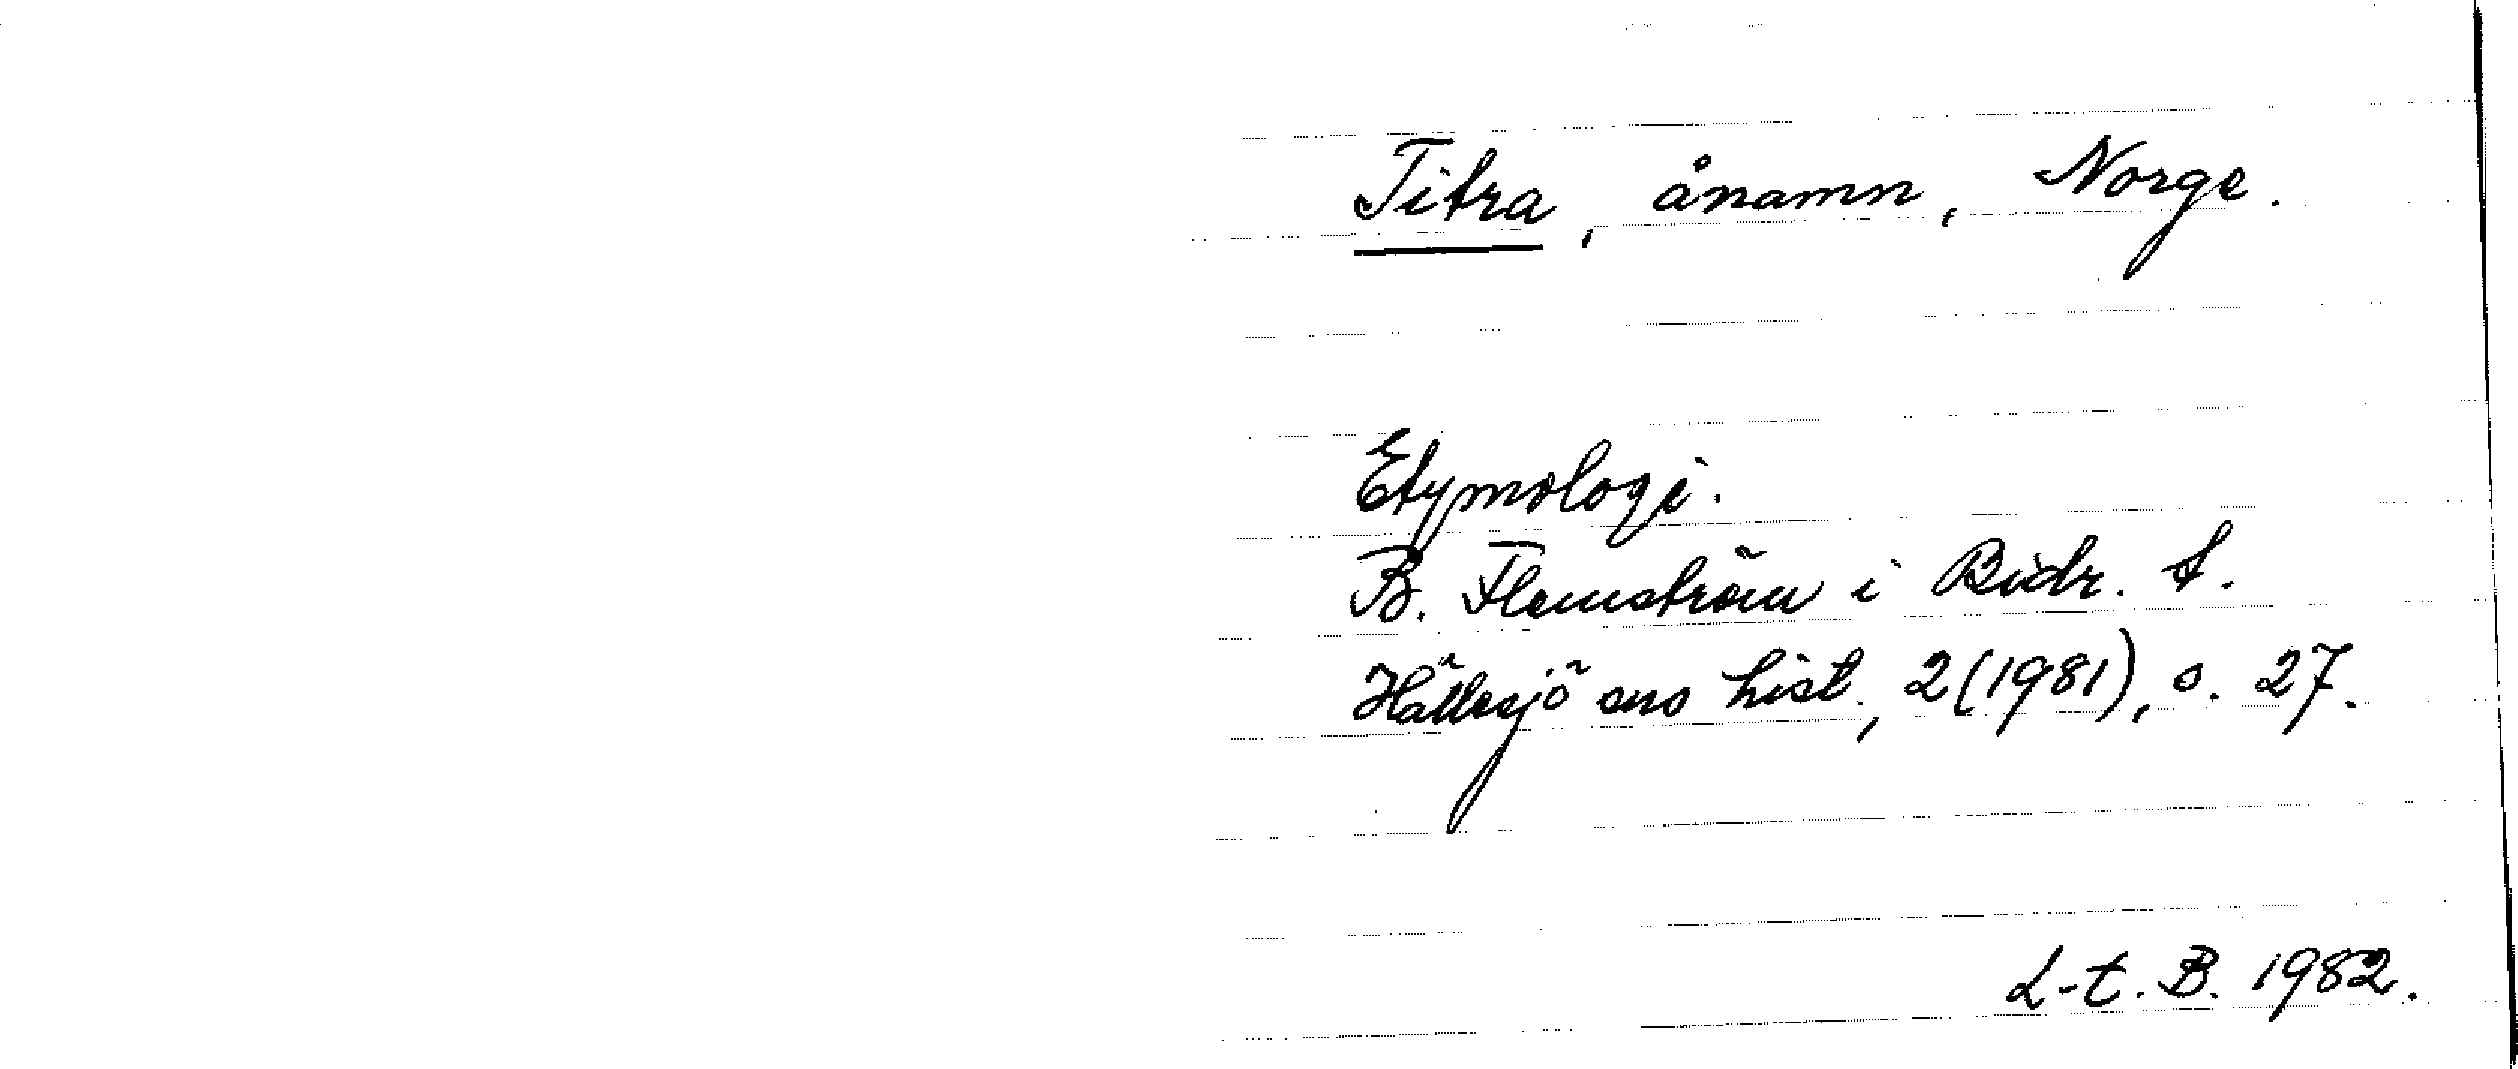 Titra, ånamn, Norge.
Etymologi.
B. Flemström i Bidr. t.
Hällesjö sns hist., 2(1981), s. 27.
L-t. B. 1982.